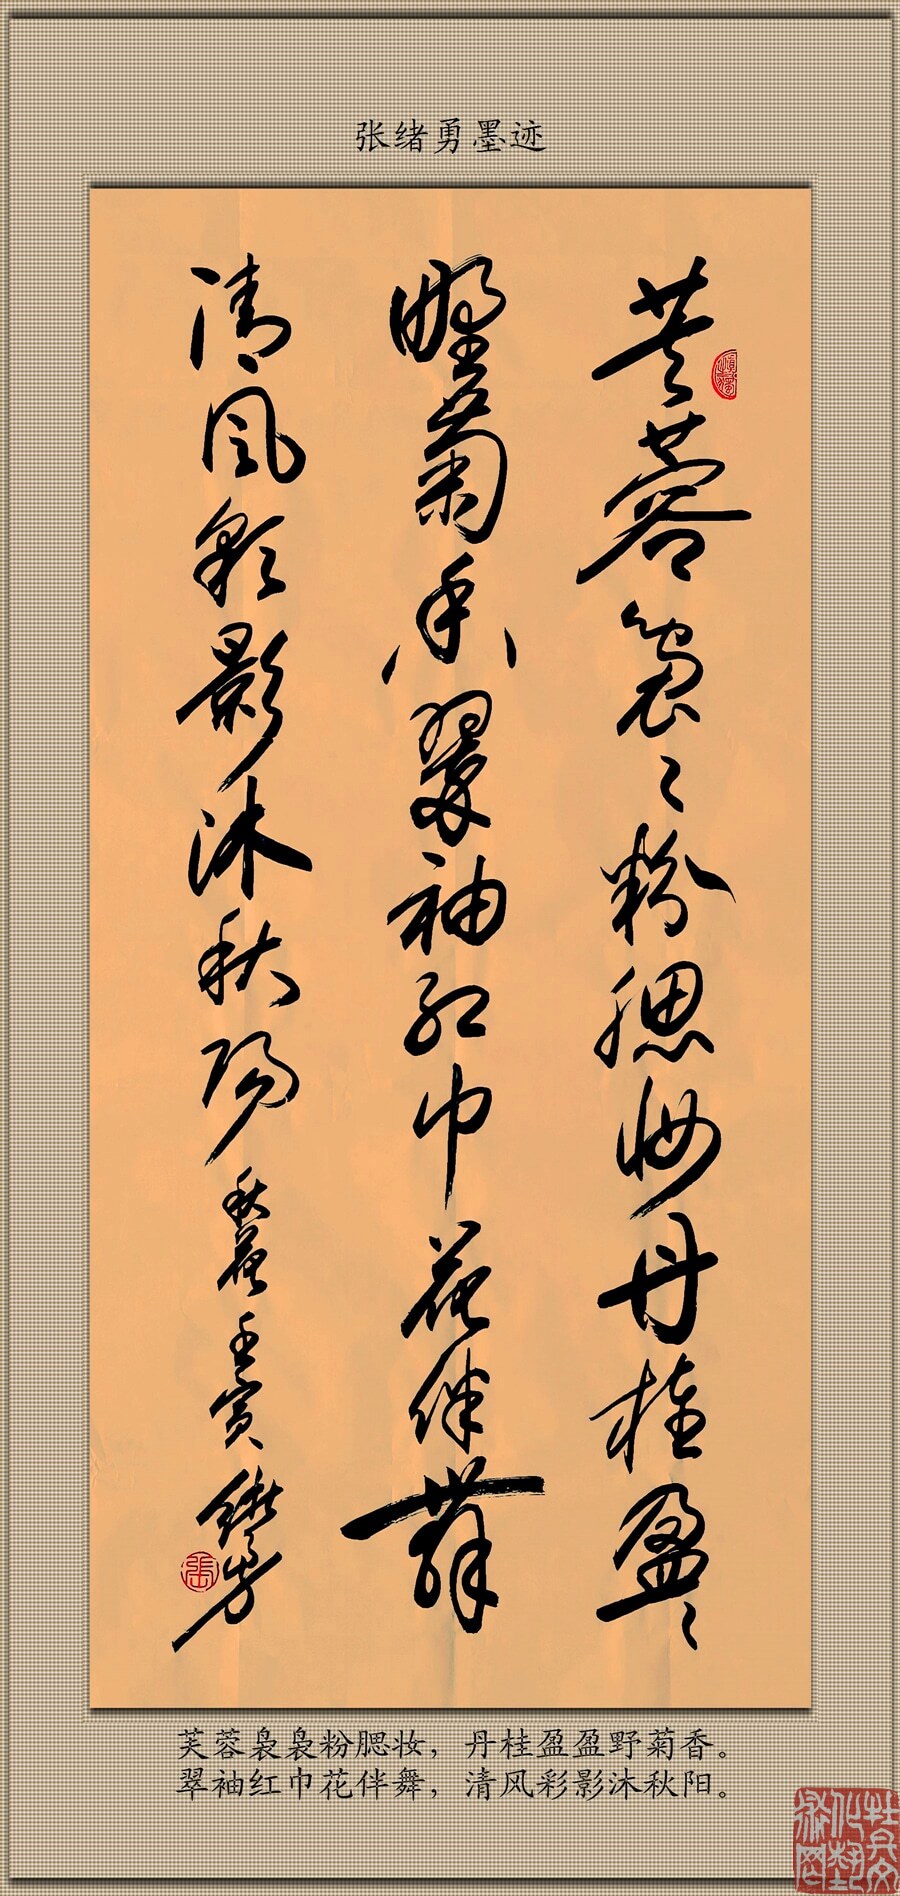 张绪勇墨迹
芙蓉袅〻粉腮妆丹桂盈〻
野菊香翠袖红巾花伴舞
清风彩影沐秋阳
秋菴壬寅绪勇
芙蓉袅袅粉腮妆，丹桂盈盈野菊香。
翠袖红巾花伴舞，清风彩影沐秋阳。